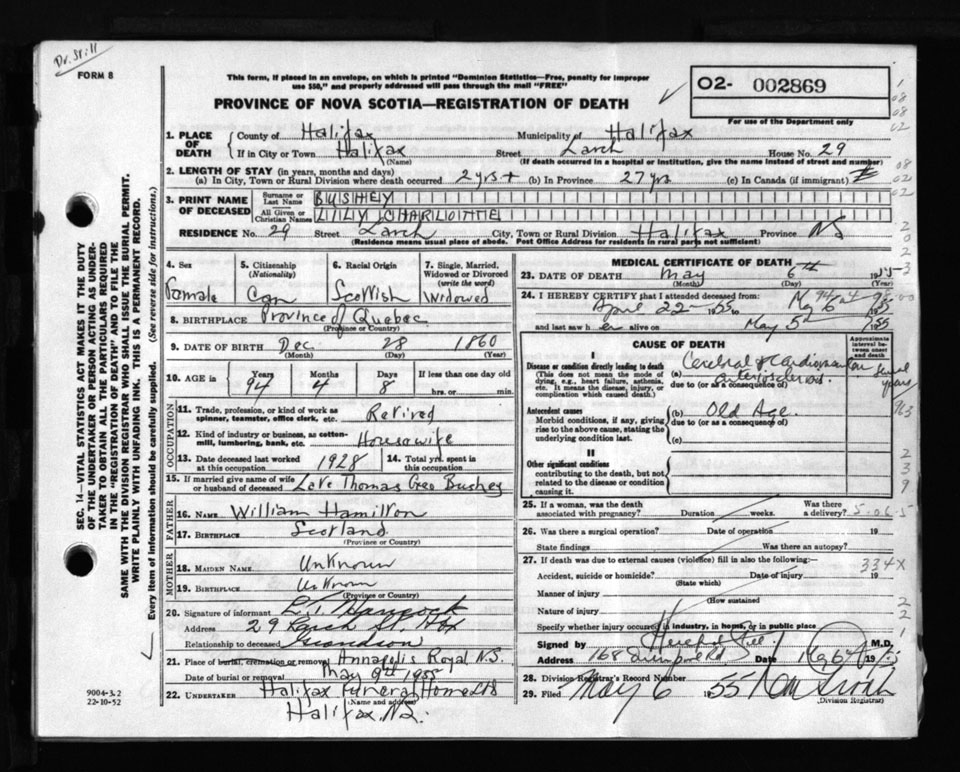 Dr. Still
FORM 8
This form, if placed in an envelope, on which is printed "Dominion Statistics—Free, penalty for improper
use $50," and properly addressed will pass through the mail "FREE"
PROVINCE OF NOVA SCOTIA—REGISTRATION OF DEATH
02- 002869
For use of the Department only
SEC. 14—VITAL STATISTICS ACT MAKES IT THE DUTY
OF THE UNDERTAKER OR PERSON ACTING AS UNDER-
TAKER TO OBTAIN ALL THE PARTICULARS REQUIRED
IN THE "REGISTRATION OF DEATH" AND TO FILE THE
SAME WITH THE DIVISION REGISTRAR WHO SHALL ISSUE THE BURIAL PERMIT.
WRITE PLAINLY WITH UNFADING INK. THIS IS A PERMANENT RECORD.
Every item of information should be carefully supplied. (See reverse side for instructions.)
1. PLACE OF DEATH County of Halifax Municipality of Halifax
If in City or Town Halifax (Name) Street Larch House No. 29
(If death occurred in a hospital or institution, give the name instead of street and number)
2. LENGTH OF STAY (in years, months and days)
(a) In City, Town or Rural Division where death occurred 2 yrs + (b) In Province 27 yrs (c) In Canada (if immigrant)
3. PRINT NAME OF DECEASED Surname or Last Name BUSHEY
All Given or Christian Names LILY CHARLOTTE
RESIDENCE No. 29 Street Larch City, Town or Rural Division Halifax Province NS
(Residence means usual place of abode. Post Office Address for residents in rural parts not sufficient)
4. Sex Female
5. Citizenship (Nationality) Can
6. Racial Origin Scottish
7. Single, Married, Widowed or Divorced (write the word) Widowed
8. BIRTHPLACE Province of Quebec
(Province or Country)
9. DATE OF BIRTH Dec. 28 1860
(Month) (Day) (Year)
10. AGE in Years 94 Months 4 Days 8 If less than one day old
hrs. or min.
OCCUPATION
11. Trade, profession, or kind of work as spinner, teamster, office clerk, etc. Retired
12. Kind of industry or business, as cotton-mill, lumbering, bank, etc. Housewife
13. Date deceased last worked at this occupation 1928
14. Total yrs. spent in this occupation
15. If married give name of wife or husband of deceased Late Thomas Geo Bushey
FATHER
16. NAME William Hamilton
17. BIRTHPLACE Scotland
(Province or Country)
MOTHER
18. MAIDEN NAME Unknown
19. BIRTHPLACE Unknown
(Province or Country)
20. Signature of informant Hancock
Address 29 Larch St Hfx
Relationship to deceased Grandson
21. Place of burial, cremation or removal Annapolis Royal N.S.
Date of burial or removal May 9th 1955
22. UNDERTAKER Halifax Funeral Home Ltd
(Name and address)
Halifax, N.S.
9004-3.2
22-10-52
MEDICAL CERTIFICATE OF DEATH
23. DATE OF DEATH May 6th 1955
(Month) (Day) (Year)
24. I HEREBY CERTIFY that I attended deceased from:
April 22 1955 to May 6th 1955
and last saw her alive on May 5th 1955
CAUSE OF DEATH
Approximate interval between onset and death
I
Disease or condition directly leading to death
(This does not mean the mode of dying, e.g., heart failure, asthenia, etc. It means the disease, injury, or complication which caused death.)
(a) Cerebral & Cardiovascular arteriosclerosis. several years
due to (or as a consequence of)
Antecedent causes
Morbid conditions, if any, giving rise to the above cause, stating the underlying condition last.
(b) Old Age.
due to (or as a consequence of)
(c)
II
Other significant conditions
contributing to the death, but not related to the disease or condition causing it.
25. If a woman, was the death associated with pregnancy? Duration weeks. Was there a delivery?
26. Was there a surgical operation? Date of operation 19
State findings Was there an autopsy?
27. If death was due to external causes (violence) fill in also the following:
334X
Accident, suicide or homicide? Date of injury 19
(State which)
Manner of injury
(How sustained
Nature of injury
Specify whether injury occured in industry, in home, or in public place
Signed by M.D.
Address 168 Date May 6th 1955
28. Division Registrar's Record Number
29. Filed May 6 1955
(Division Registrar)